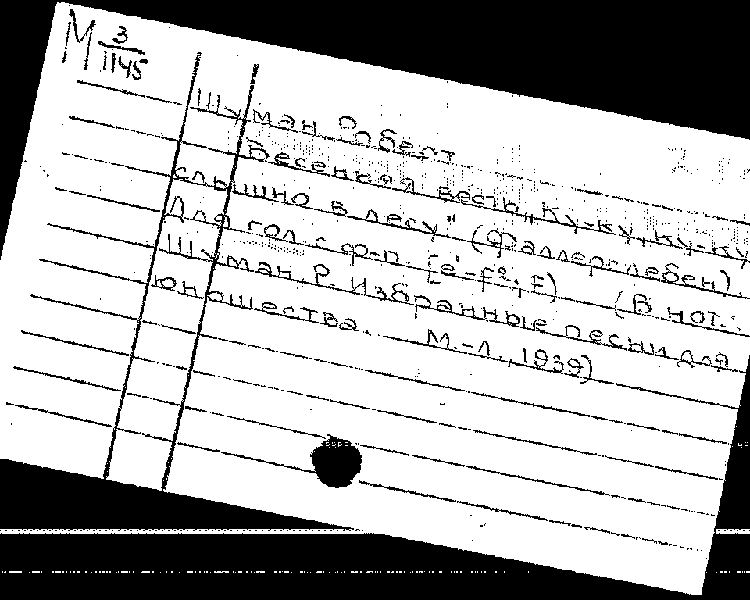 М 3/1145
Шуман Роберт
Весенняя весть „Ку-ку, ку-ку
слышно в лесу" (Фаллерслебен).
Для гол. с ф-п. [e¹-f²; E] (В нот.:
Шуман, Р. Избранные песни для
юношества. М.-Л., 1939)